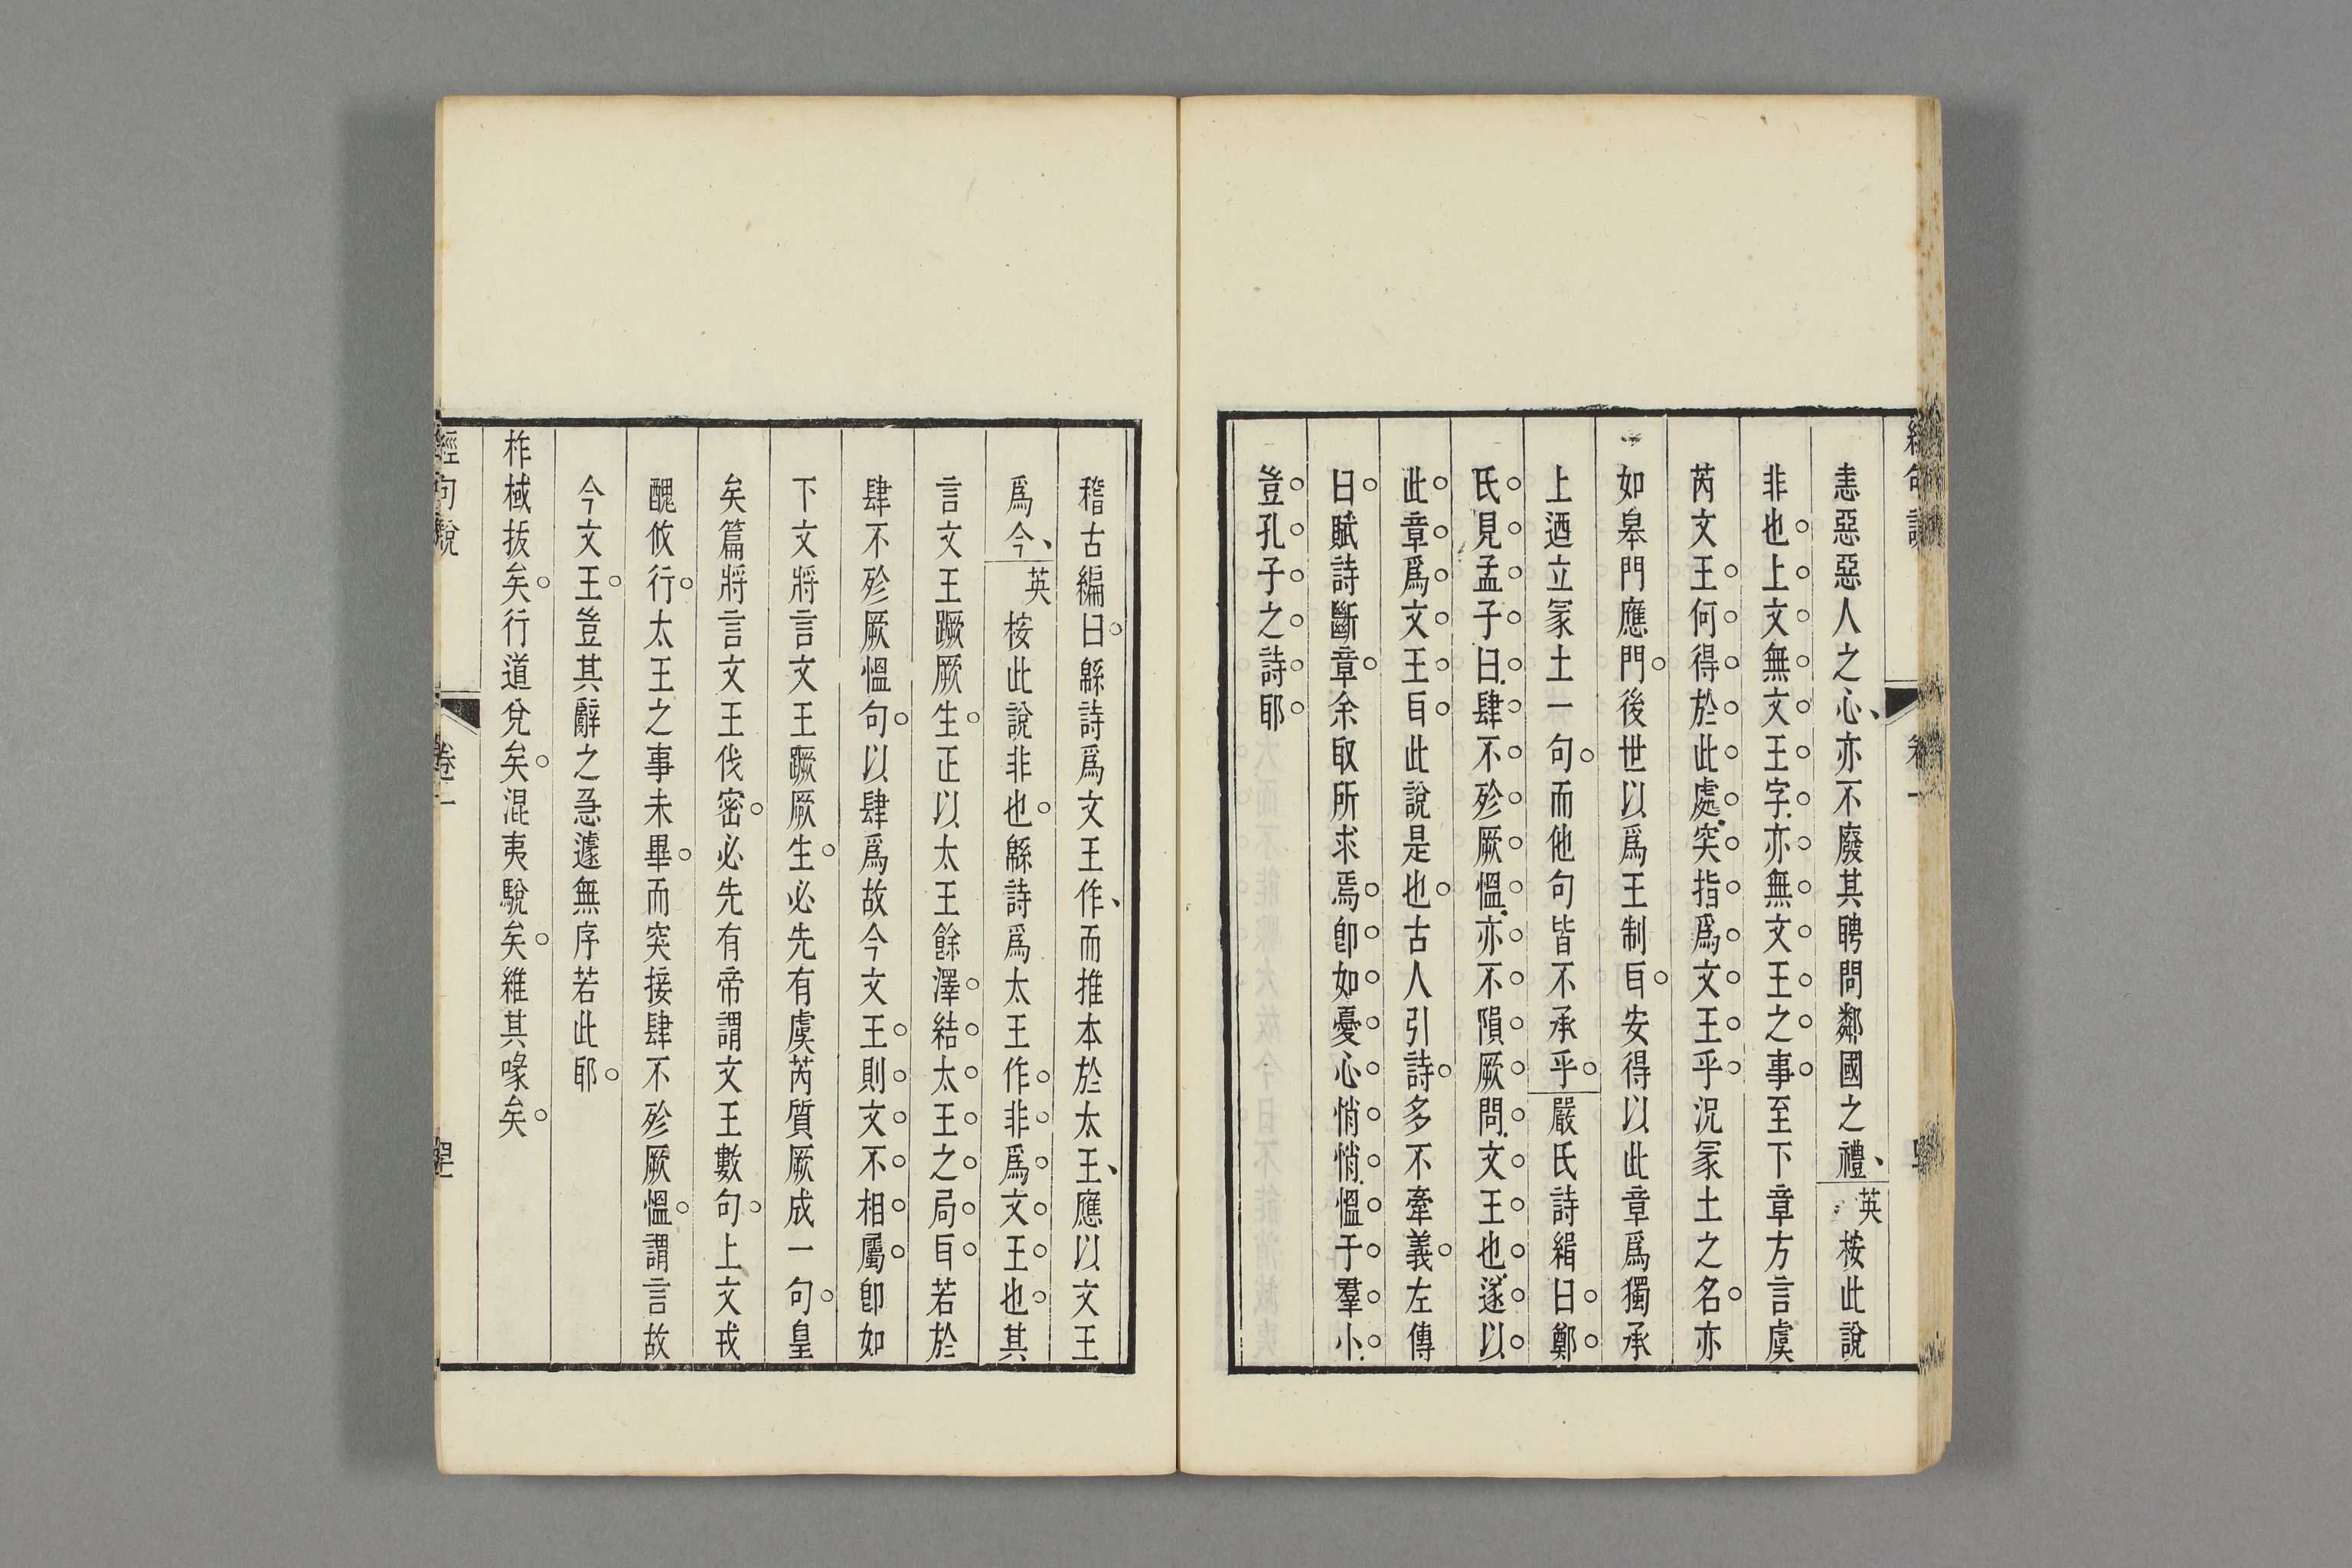 恚惡惡人之心亦不廢其聘問鄰國之禮英桉此說
非也上文無文王字亦無文王之事至下章方言虞
芮文王何得於此處突指爲文王乎況冡土之名亦
如皋門應門後世以爲王制㠯安得以此章爲獨承
上迺立冡土一句而他句皆不承乎嚴氏詩緝曰鄭
氏見孟子曰肆不殄厥慍亦不隕厥問文王也遂以
此章爲文王㠯此說是也古人引詩多不牽義左傳
曰賦詩斷章余取所求焉卽如憂心悄悄慍于羣小
豈孔子之詩耶
稽古編曰緜詩爲文王作而推本於太王應以文王
爲今英桉此說非也緜詩爲太王作非爲文王也其
言文王蹶厥生正以太王餘澤結太王之局㠯若於
肆不殄厥慍句以肆爲故今文王則文不相屬卽如
下文將言文王蹶厥生必先有虞芮質厥成一句皇
矣篇將言文王伐密必先有帝謂文王數句上文戎
醜攸行太王之事未畢而突接肆不殄厥慍謂言故
今文王豈其辭之急遽無序若此耶
柞棫拔矣行道兌矣混夷駾矣維其喙矣
經句說
卷二